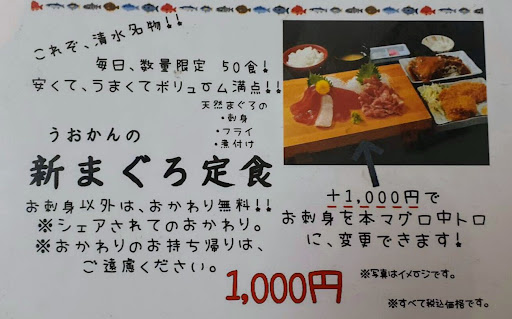 これぞ、清水名物!!
毎日、数量限定 50食!
安くて、うまくてボリューム満点!!
天然まぐろの
・刺身
・フライ
・煮付け
うおかんの
新まぐろ定食
お刺身以外は、おかわり無料!!
※シェアされてのおかわり。
※おかわりのお持ち帰りは、
ご遠慮ください。
1,000円
+1,000円で
お刺身を本マグロ中トロ
に、変更できます!
※写真はイメージです。
※すべて税込価格です。